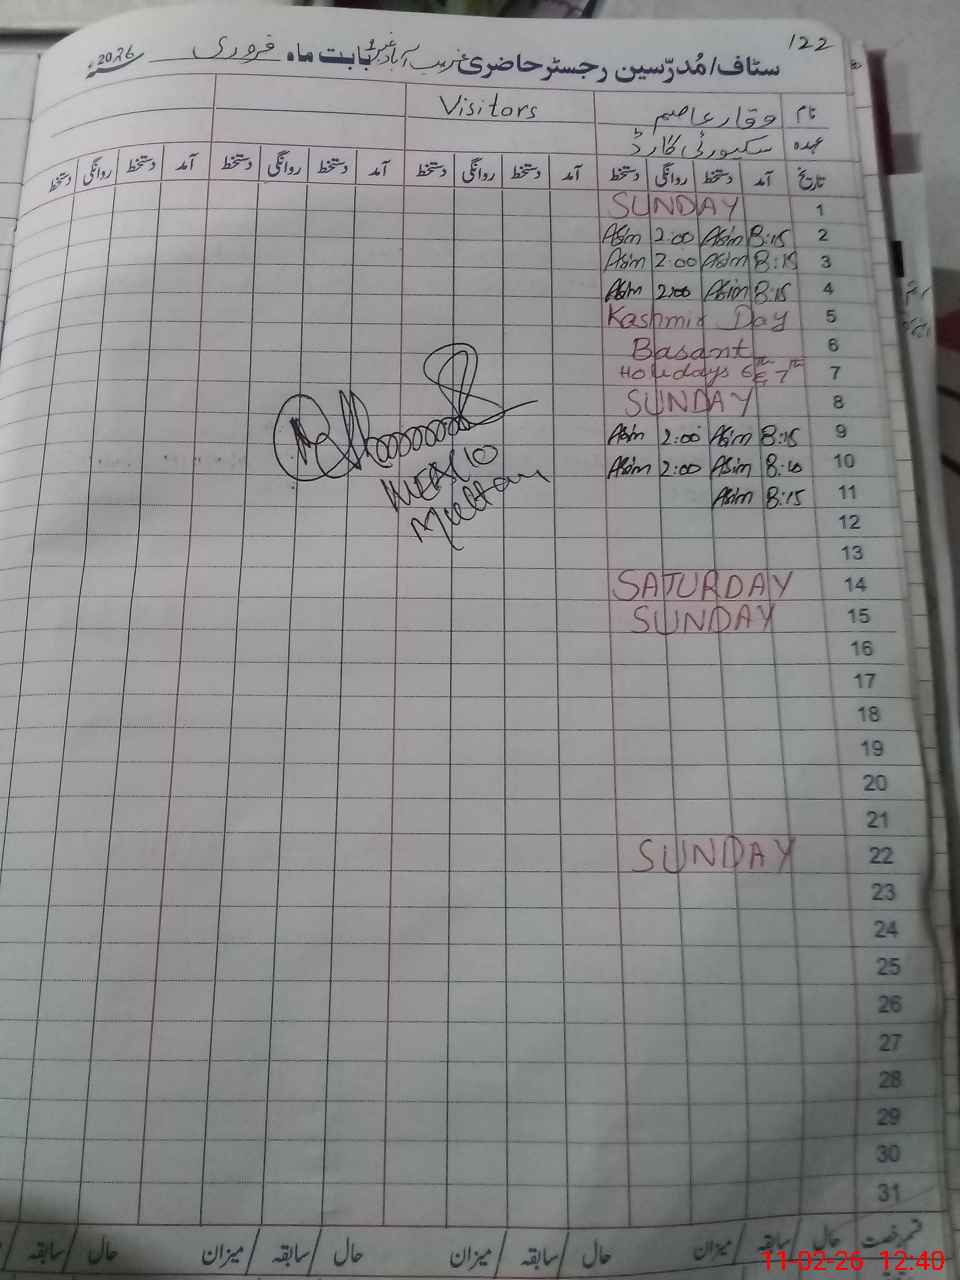 122
سٹاف/مُدرّسین رجسٹر حاضری غریب آباد نمبر بابت ماہ فروری 2026ء
نام وقار عاصم Visitors
عہدہ سکیورٹی گارڈ
تاریخ آمد دستخط روانگی دستخط آمد دستخط روانگی دستخط آمد دستخط روانگی دستخط آمد دستخط روانگی دستخط
1 SUNDAY
2 8:15 Asim 2:00 Asim
3 8:15 Asim 2:00 Asim
4 8:15 Asim 2:00 Asim
5 Kashmir Day
6 Basant
7 Holidays 6th & 7th
8 SUNDAY
9 8:15 Asim 2:00 Asim
10 8:10 Asim 2:00 Asim
11 8:15 Asim
12
13
14 SATURDAY
15 SUNDAY
16
17
18
19
20
21
22 SUNDAY
23
24
25
26
27
28
29
30
31
Multan
قسم رخصت حال سابقہ میزان حال سابقہ میزان حال سابقہ میزان حال سابقہ
11-02-26 12:40